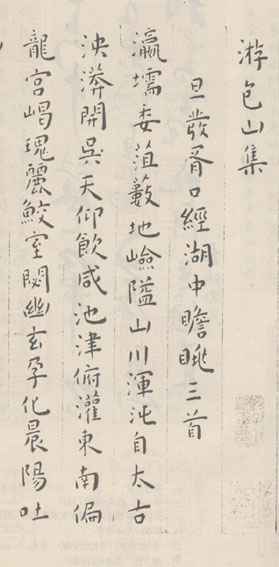 游包山集
旦發胥口經湖中瞻眺三首
瀛壖委菹藪地嶮隘山川渾沌自太古
泱漭開吳天仰飲咸池津俯灌東南偏
龍宮嵑瑰麗鮫室閟幽玄孕化晨陽吐